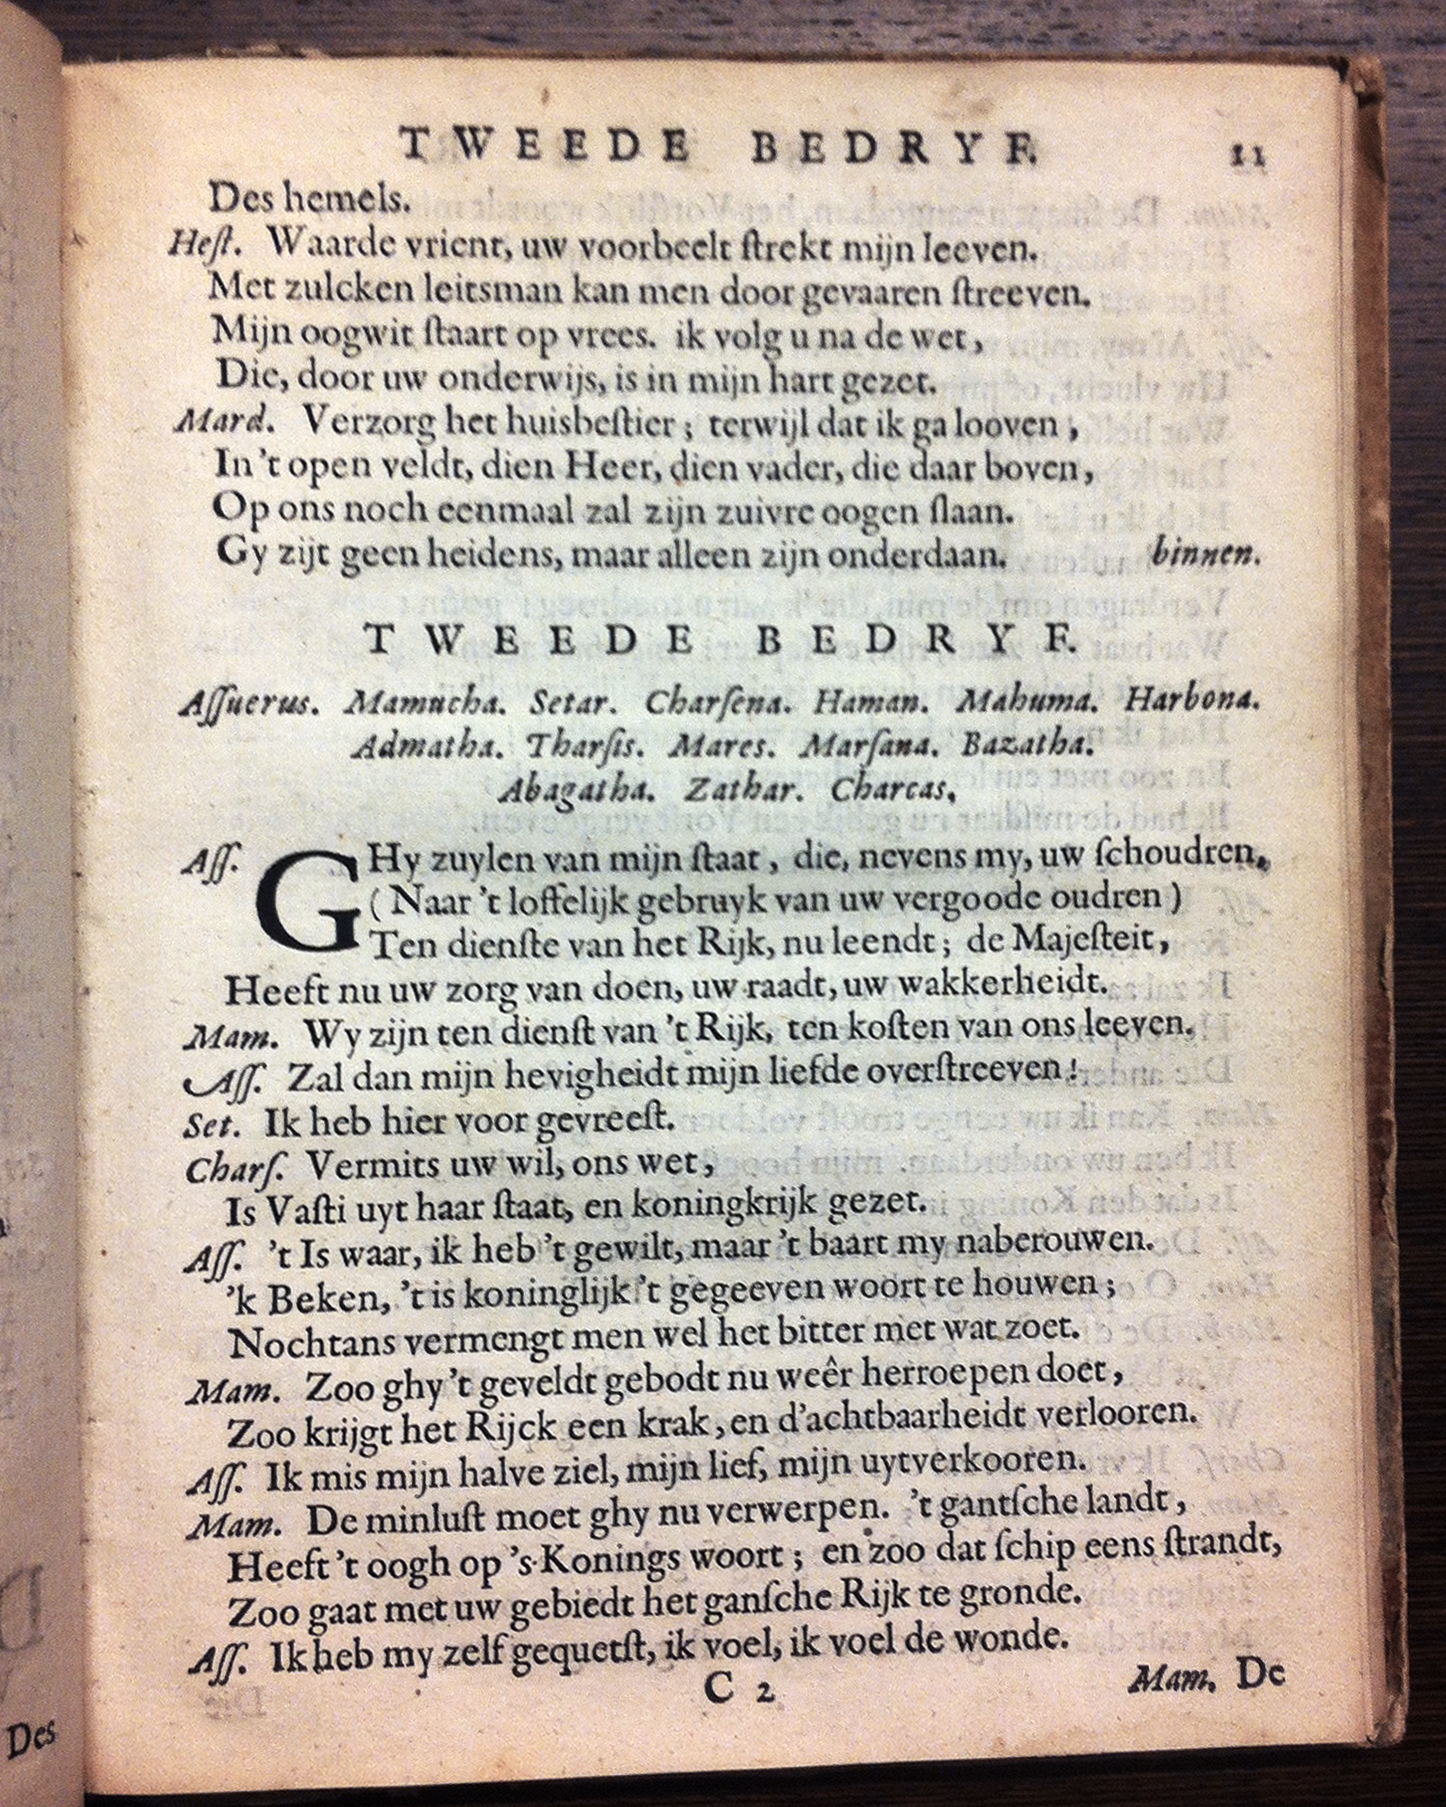 TWEEDE BEDRYF. 11
Des hemels.
Heſt. Waarde vrient, uw voorbeelt ſtrekt mijn leeven.
Met zulcken leitsman kan men door gevaaren ſtreeven.
Mijn oogwit ſtaart op vrees. ik volg u na de wet,
Die, door uw onderwijs, is in mijn hart gezet.
Mard. Verzorg het huisbeſtier; terwijl dat ik ga looven,
In 't open veldt, dien Heer, dien vader, die daar boven,
Op ons noch eenmaal zal zijn zuivre oogen ſlaan.
Gy zijt geen heidens, maar alleen zijn onderdaan. binnen.
TWEEDE BEDRYF.
Aſſuerus. Mamucha. Setar. Charſena. Haman. Mahuma. Harbona.
Admatha. Tharſis. Mares. Marſana. Bazatha.
Abagatha. Zathar. Charcas.
Aſſ. GHy zuylen van mijn ſtaat, die, nevens my, uw ſchoudren,
(Naar 't loffelijk gebruyk van uw vergoode oudren)
Ten dienſte van het Rijk, nu leendt; de Majeſteit,
Heeft nu uw zorg van doen, uw raadt, uw wakkerheidt.
Mam. Wy zijn ten dienſt van 't Rijk, ten koſten van ons leeven.
Aſſ. Zal dan mijn hevigheidt mijn liefde overſtreeven!
Set. Ik heb hier voor gevreeſt.
Charſ. Vermits uw wil, ons wet,
Is Vaſti uyt haar ſtaat, en koningkrijk gezet.
Aſſ. 't Is waar, ik heb 't gewilt, maar 't baart my naberouwen.
'k Beken, 't is koninglijk 't gegeeven woort te houwen;
Nochtans vermengt men wel het bitter met wat zoet.
Mam. Zoo ghy 't geveldt gebodt nu weêr herroepen doet,
Zoo krijgt het Rijck een krak, en d'achtbaarheidt verlooren.
Aſſ. Ik mis mijn halve ziel, mijn lief, mijn uytverkooren.
Mam. De minluſt moet ghy nu verwerpen. 't gantſche landt,
Heeft 't oogh op 's Konings woort; en zoo dat ſchip eens ſtrandt,
Zoo gaat met uw gebiedt het ganſche Rijk te gronde.
Aſſ. Ik heb my zelf gequetſt, ik voel, ik voel de wonde.
C 2 Mam. De
Des